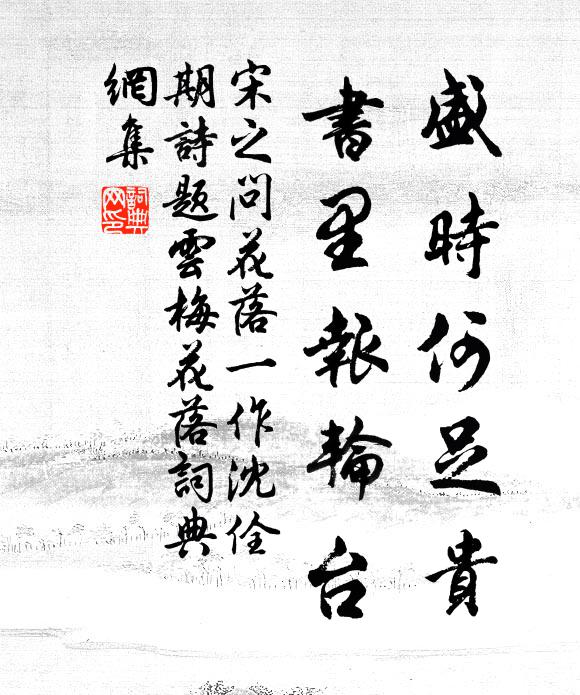 盛時何足貴
書里報輪台
宋之問花落一作沈佺
期詩題雲梅花落詞典
網集
詞典网印